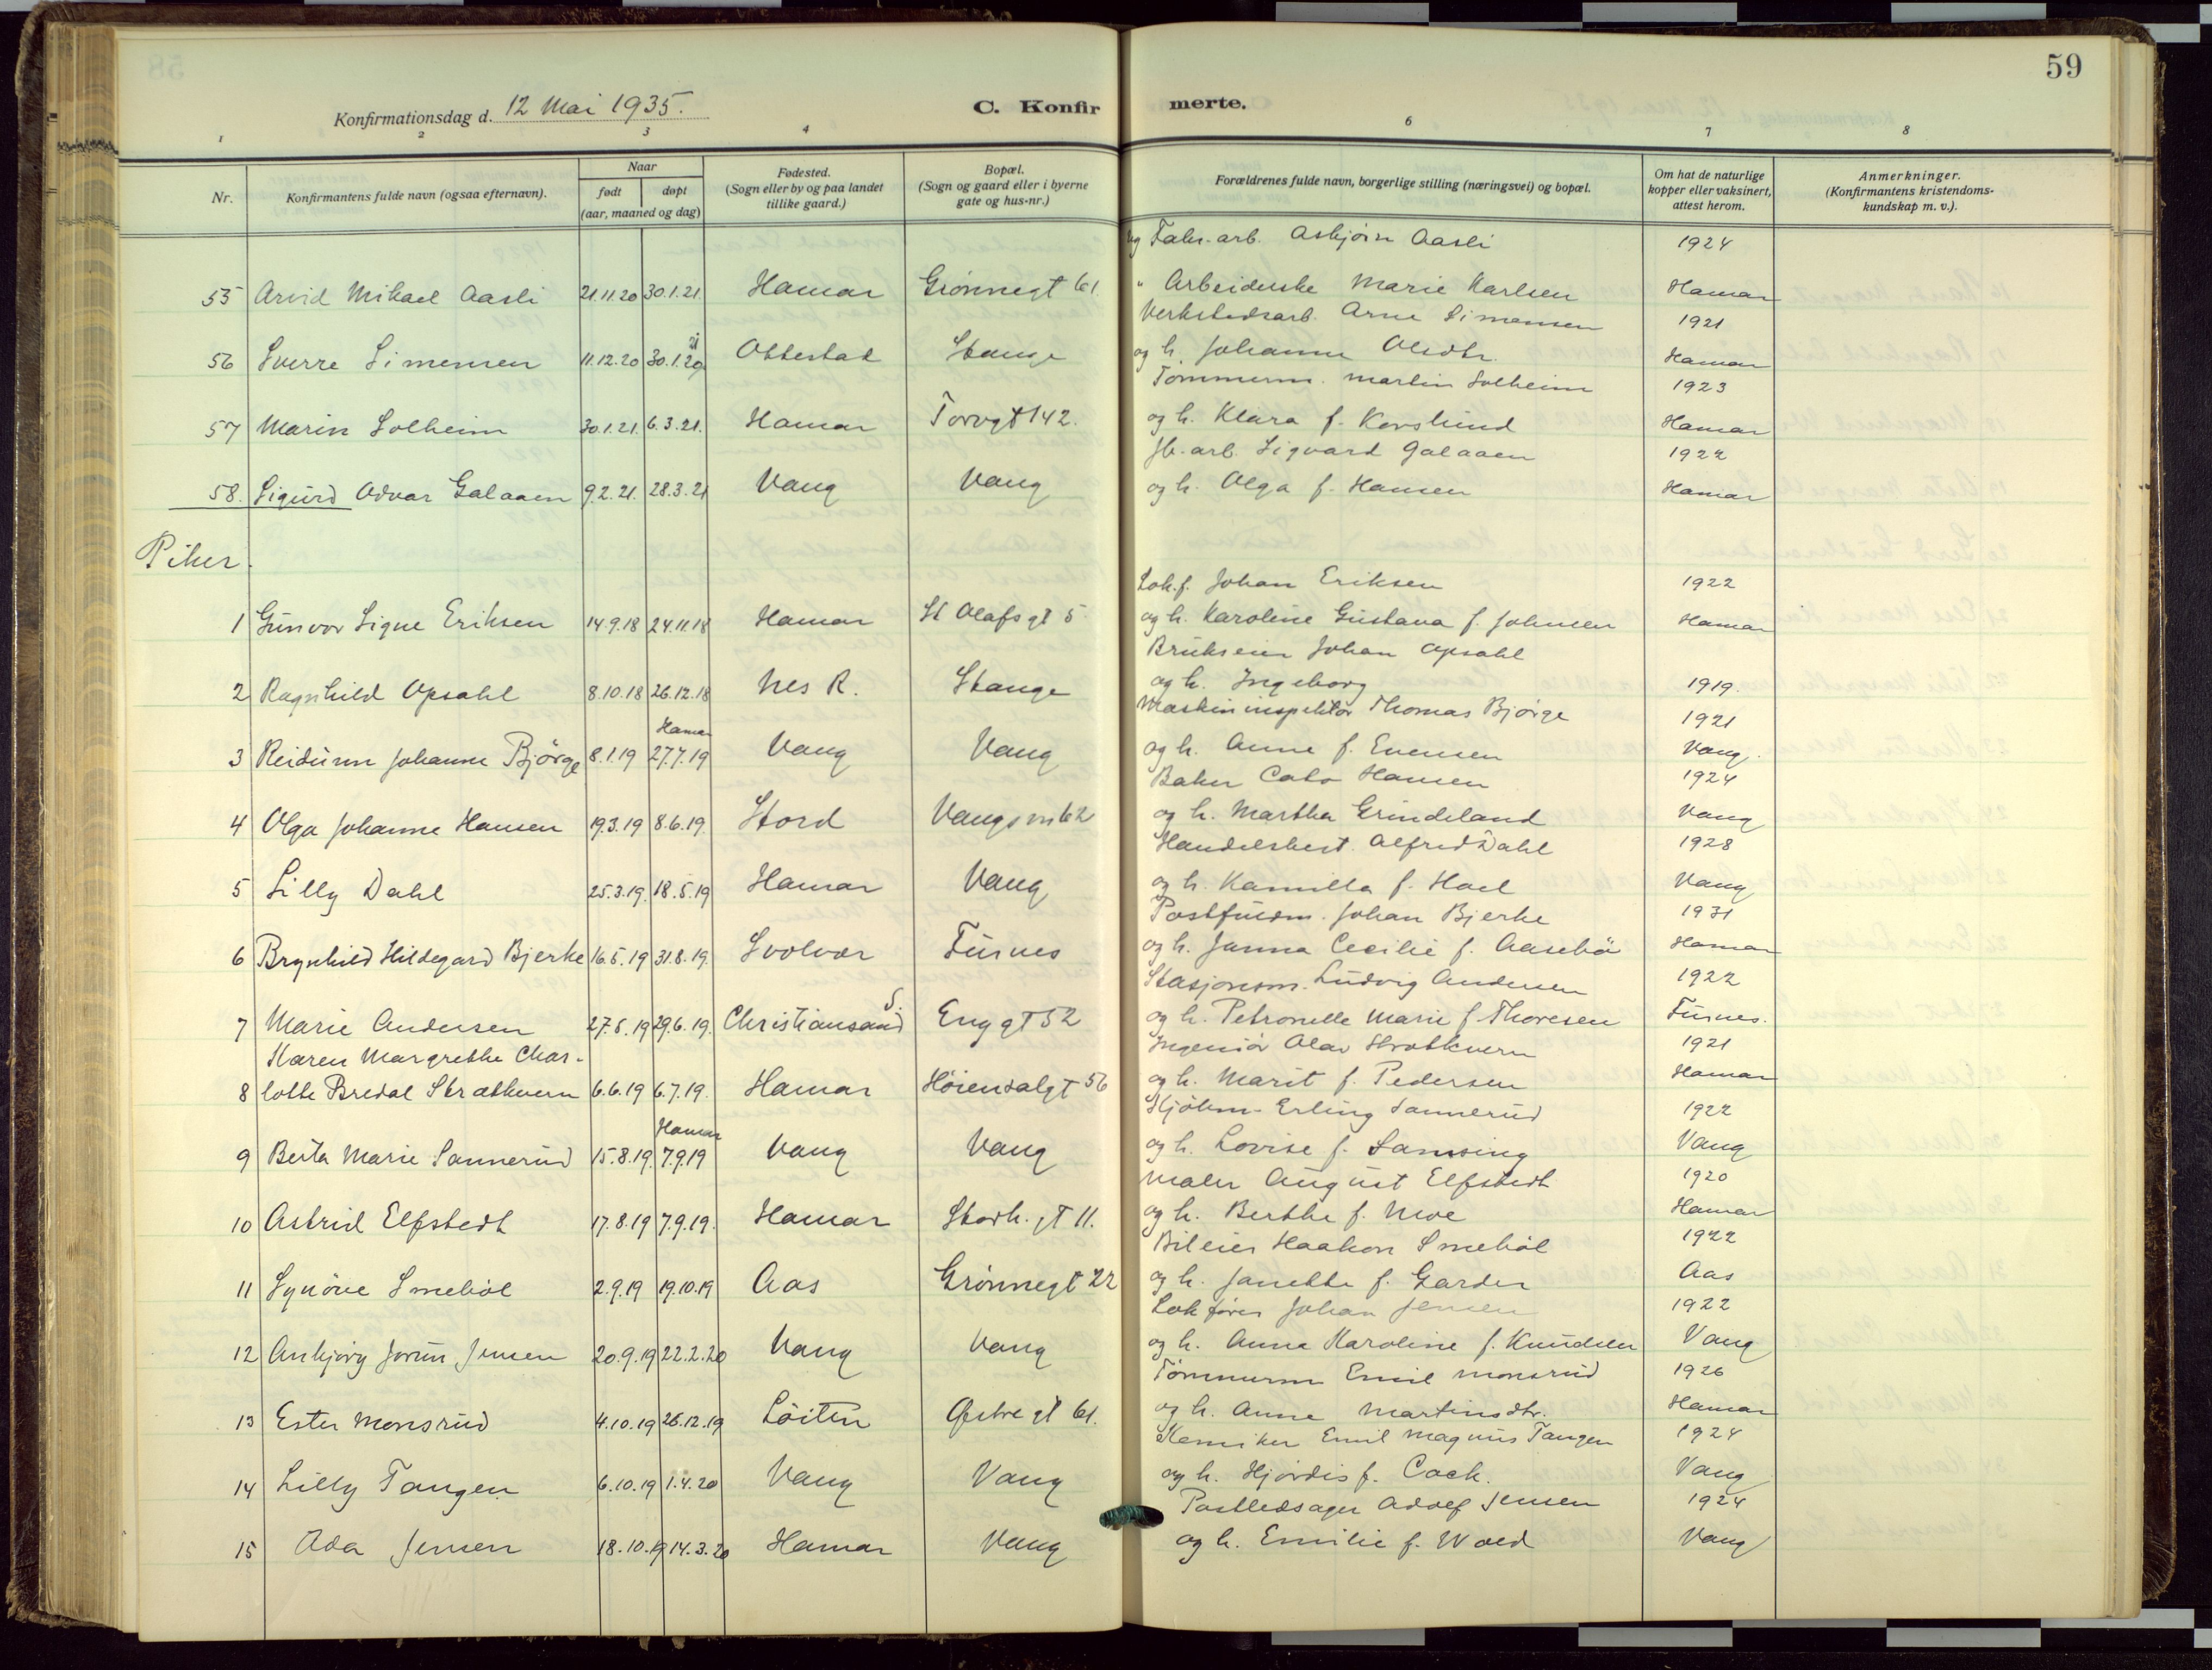 59
Konfirmationsdag d. 12 Mai 1935.
C. Konfirmerte.
1 2 3 4 6 7 8
Nr.
Konfirmantens fulde navn (ogsaa efternavn).
Naar
født
døpt
(aar, maaned og dag)
Fødested.
(Sogn eller by og paa landet
tillike gaard.)
Bopæl.
(Sogn og gaard eller i byerne
gate og hus-nr.)
Forældrenes fulde navn, borgerlige stilling (næringsvei) og bopæl.
Om hat de naturlige
kopper eller vaksinert,
attest herom.
Anmerkninger.
(Konfirmantens kristendoms-
kundskap m. v.).
Fabr.-arb. Asbjørn Aasli 1924
55 Arvid Mikael Aasli 21.11.20 30.1.21. Hamar Grønnegt 61. " Arbeiderske Marie Karlsen Hamar
Verkstedsarb. Arne Simensen 1921
21
56 Sverre Simensen 11.12.20 30.1.20 Ottestad Stange og h. Johanne Olsdtr. Hamar
Tømmerm. Martin Solheim 1923
57 Marin Solheim 30.1.21. 6.3.21. Hamar Torvgt 142. og h. Klara f. Korslund Hamar
Jb.-arb. Sigvard Galaaen 1922
58. Sigurd Odvar Galaaen 9.2.21. 28.3.21 Vang Vang og h. Olga f. Hansen Hamar
Piker.
Lok.f. Johan Eriksen 1922
1 Gunvor Signe Eriksen 14.9.18 24.11.18 Hamar St Olafsgt 5 og h. Karoline Gustava f. Johnsen Hamar
Brukseier Johan Opsahl
2 Ragnhild Opsahl 8.10.18 26.12.18 Nes R. Stange og h. Ingeborg 1919.
Maskininspektør Thomas Bjørge 1921
Hamar
3 Reidunn Johanne Bjørge 8.1.19 27.7.19 Vang Vang og h. Anne f. Evensen Vang.
Baker Cato Hansen 1924
4 Olga Johanne Hansen 19.3.19 8.6.19. Stord Vangsvn 62 og h. Martha Grindeland Vang
Handelsbest. Alfred Dahl 1928
5 Lilly Dahl 25.3.19. 18.5.19 Hamar Vang og h. Kamilla f. Hoel Vang
Postfuldm. Johan Bjerke 1931
6 Brynhild Hildegard Bjerke 16.5.19 31.8.19. Svolvær Furnes og h. Janna Cecilie f. Aasebø Hamar
Stasjonsm. Ludvig Andersen 1922
7 Marie Andersen 27.5.19 29.6.19. Christiansand S. Enggt 52 og h. Petronelle Marie f. Thoresen Furnes.
Karen Margrethe Char- Ingeniør Olav Strætkvern 1921
8 lotte Bredal Strætkvern 6.6.19 6.7.19. Hamar Høiensalgt 56 og h. Marit f. Pedersen Hamar
Kjøbm. Erling Sannerud 1922
Hamar
9 Berta Marie Sannerud 15.8.19. 7.9.19 Vang Vang og h. Lovise f. Samsing Vang
Maler August Elfstedt 1920
10 Astrid Elfstedt 17.8.19 7.9.19. Hamar Storh. gt 11. og h. Berthe f. Moe Hamar
Bileier Haakon Smebøl 1922
11 Synøve Smebøl 2.9.19 19.10.19 Aas Grønnegt 22 og h. Janette f. Garder Aas
Lokfører Johan Jensen 1922
12 Anbjørg Jorun Jensen 20.9.19 22.2.20 Vang Vang og h. Anna Karoline f. Knudsen Vang
Tømmerm Emil Monsrud 1926
13 Ester Monsrud 4.10.19 26.12.19 Løiten Østre gt 61. og h. Anne Martinsdtr. Hamar
Kemiker Emil Magnus Tangen 1924
14 Lilly Tangen 6.10.19 1.4.20 Vang Vang og h. Hjørdis f. Cock. Vang
Postledsager Adolf Jensen 1924
15 Ada Jensen 18.10.19 14.3.20 Hamar Vang og h. Emilie f. Wold Vang